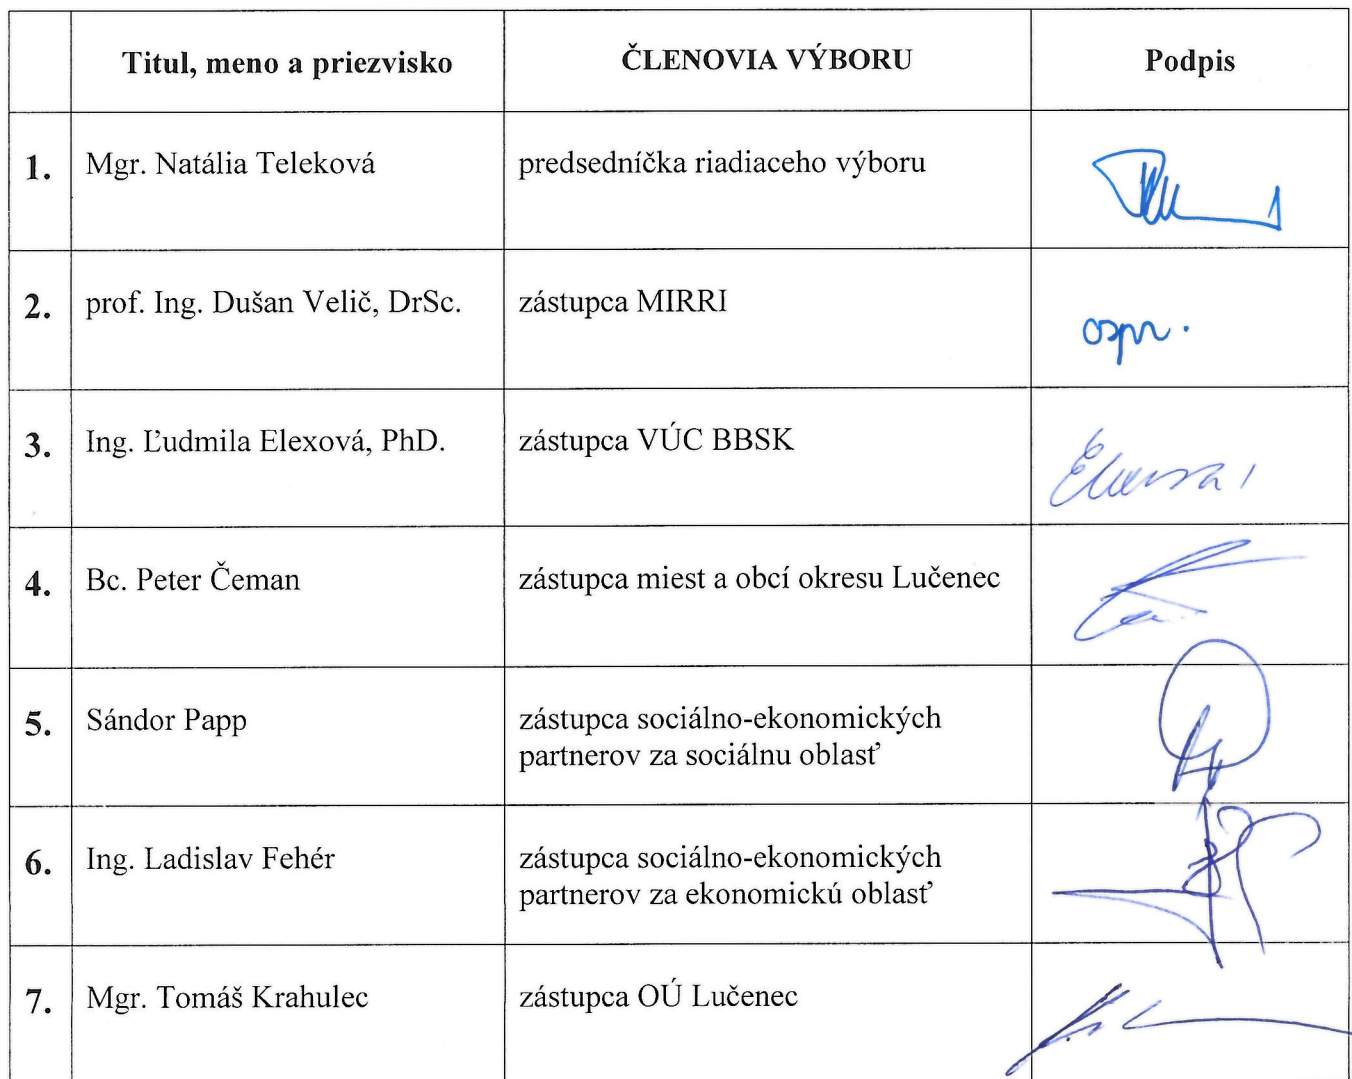 Titul, meno a priezvisko ČLENOVIA VÝBORU Podpis
1. Mgr. Natália Teleková predsedníčka riadiaceho výboru
2. prof. Ing. Dušan Velič, DrSc. zástupca MIRRI
ospr.
3. Ing. Ľudmila Elexová, PhD. zástupca VÚC BBSK
4. Bc. Peter Čeman zástupca miest a obcí okresu Lučenec
5. Sándor Papp zástupca sociálno-ekonomických
partnerov za sociálnu oblasť
6. Ing. Ladislav Fehér zástupca sociálno-ekonomických
partnerov za ekonomickú oblasť
7. Mgr. Tomáš Krahulec zástupca OÚ Lučenec